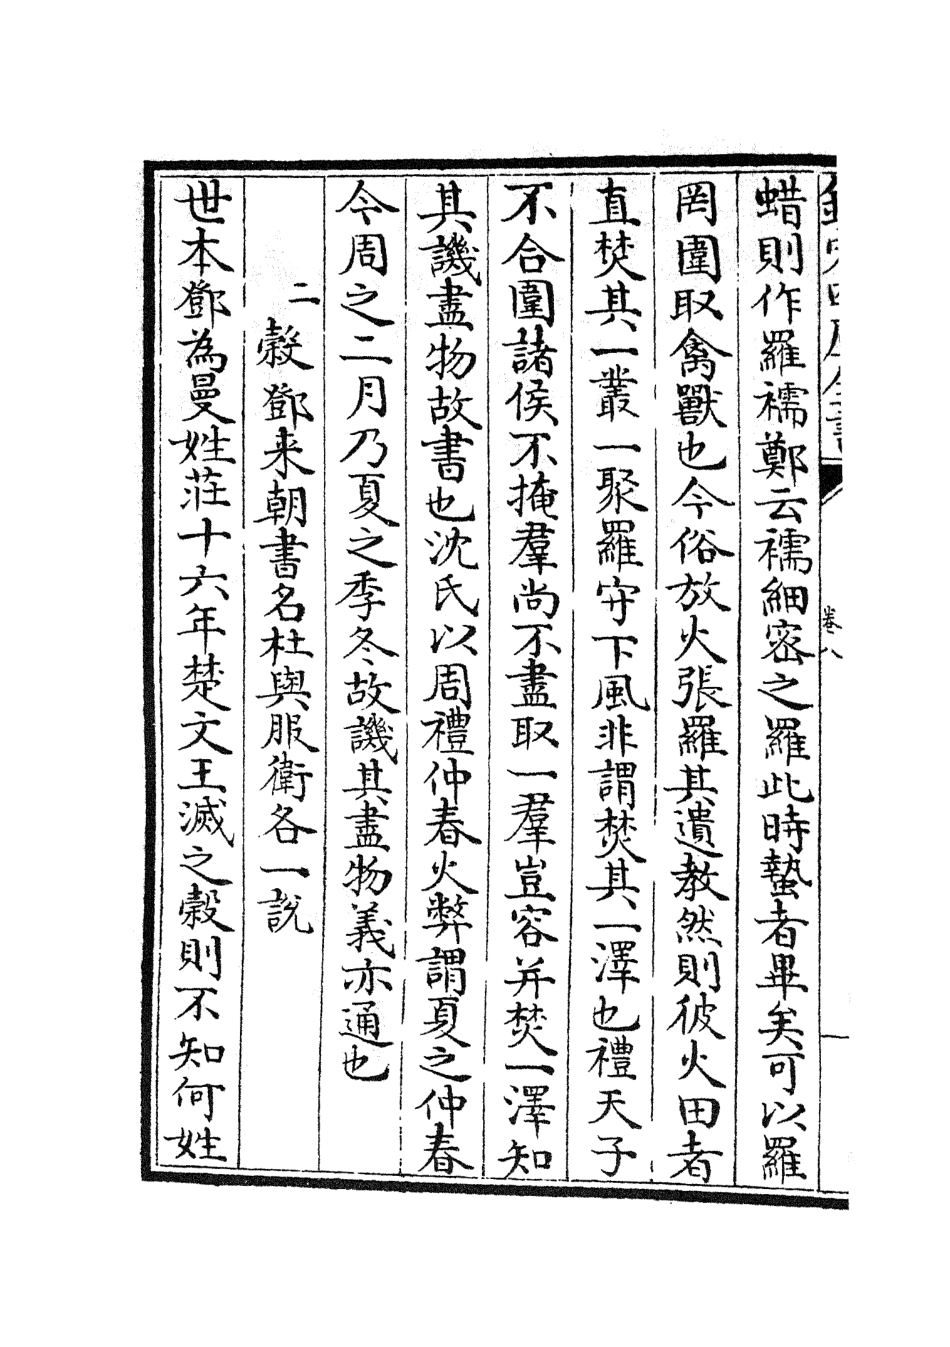 蜡則作羅襦鄭云襦細密之羅此時蟄者畢矣可以羅
罔圍取禽獸也今俗放火張羅其遺教然則彼火田者
直焚其一叢一聚羅守下風非謂焚其一澤也禮天子
不合圍諸侯不掩羣尚不盡取一羣豈容并焚一澤知
其譏盡物故書也沈氏以周禮仲春火弊謂夏之仲春
今周之二月乃夏之季冬故譏其盡物義亦通也
二 穀鄧来朝書名杜與服衛各一說
世本鄧為曼姓莊十六年楚文王滅之穀則不知何姓
卷八